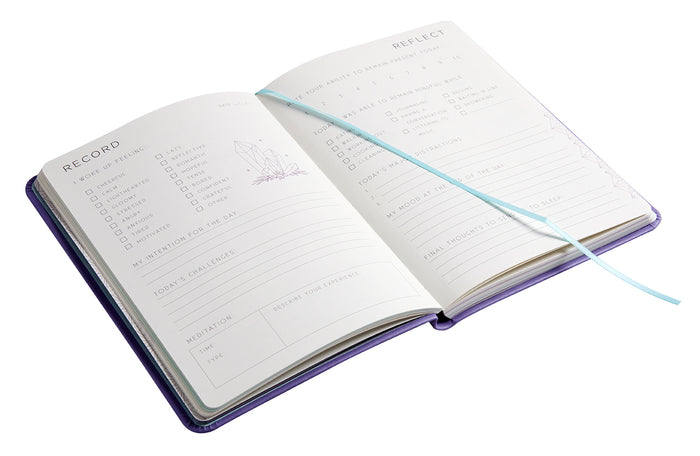 RECORD
I WOKE UP FEELING:
CHEERFUL
CALM
LIGHTHEARTED
GLOOMY
STRESSED
ANGRY
ANXIOUS
TIRED
MOTIVATED
LAZY
REFLECTIVE
ROMANTIC
HOPEFUL
TENSE
BORED
CONFIDENT
GRATEFUL
OTHER
MY INTENTION FOR THE DAY
TODAY'S CHALLENGES:
MEDITATION:
TIME
TYPE
DESCRIBE YOUR EXPERIENCE
REFLECT
YOUR ABILITY TO REMAIN PRESENT TODAY
4 5 6 7 8 9 10
TODAY I WAS ABLE TO REMAIN MINDFUL WHILE
EATING
WORKING OUT
COOKING
CLEANING
JOURNALING
HAVING A
CONVERSATION
LISTENING TO
MUSIC
DRIVING
WAITING IN LINE
SHOWERING
TODAY'S MAJOR DISTRACTIONS
MY MOOD AT THE END OF THE DAY
FINAL THOUGHTS TO SEND TO SLEEP